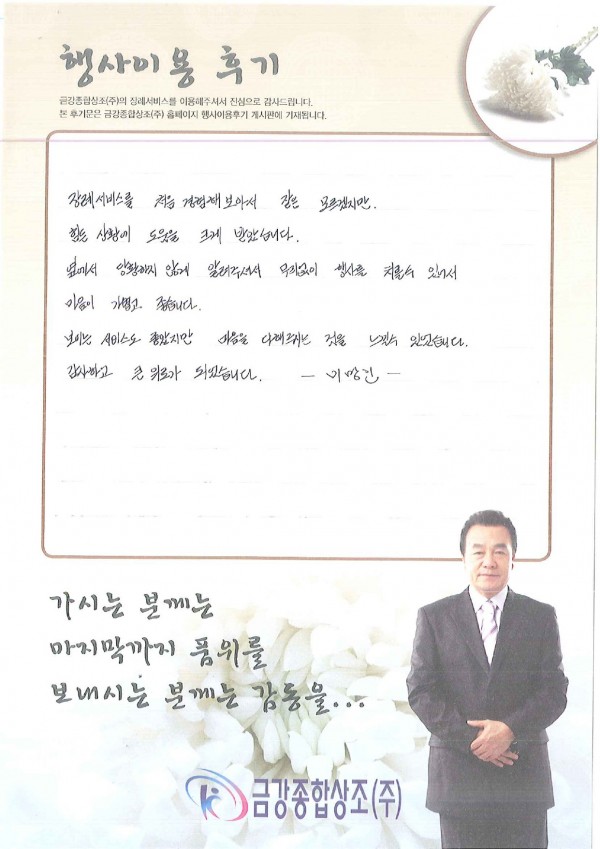 행사이용 후기
금강종합상조(주)의 장례서비스를 이용해주셔서 진심으로 감사드립니다.
본 후기문은 금강종합상조(주) 홈페이지 행사이용후기 게시판에 기재됩니다.
장례서비스를 처음 경험해보아서 잘은 모르겠지만.
힘든 상황에 도움을 크게 받았습니다.
옆에서 당황하지 않게 알려주셔서 막힘없이 행사를 치를수 있어서
마음이 가볍고 좋습니다.
보이는 서비스도 좋았지만 마음을 다해주시는 것을 느낄수 있었습니다.
감사하고 큰 위로가 되었습니다.
가시는 분께는
마지막까지 품위를
보내시는 분께는 감동을...
금강종합상조(주)